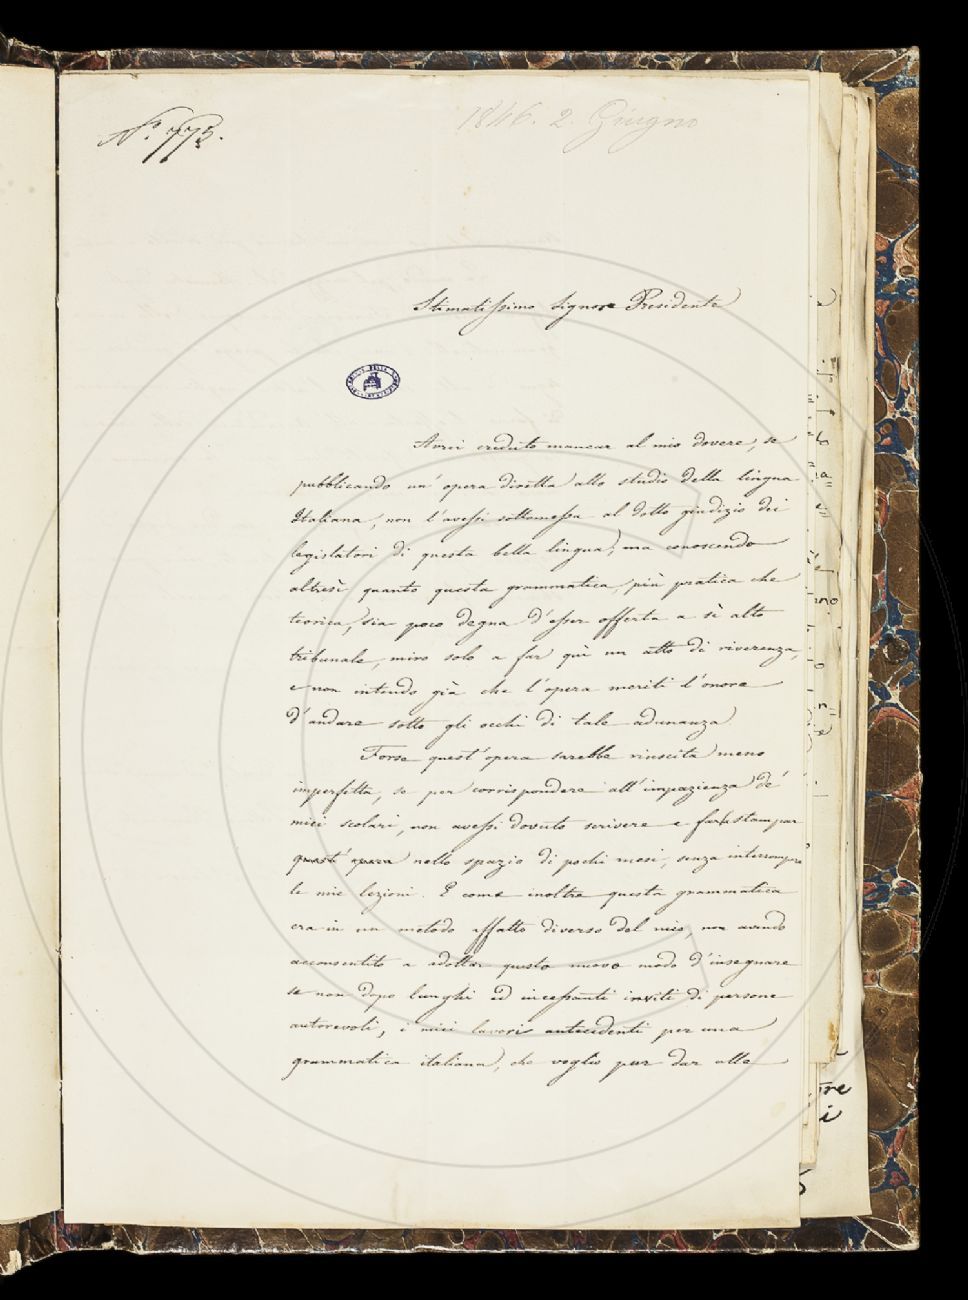 N.° 773.
1846. 2. Giugno
Stimatissimo Signore Presidente
Avrei creduto mancar al mio dovere, se
pubblicando un' opera diretta allo studio della lingua
Italiana, non l'avessi sottomessa al dotto giudizio dei
legislatori di questa bella lingua; ma conoscendo
altresì quanto questa grammatica, più pratica che
teorica, sia poco degna d'esser offerta a sì alto
tribunale, miro solo a far quì un atto di riverenza,
e non intendo già che l'opera meriti l'onore
d'andare sotto gli occhi di tale adunanza
Forse quest' opera sarebbe riuscita meno
imperfetta, se per corrispondere all' impazienza de'
miei scolari, non avessi dovuto scrivere e far stampar
quest' opera nello spazio di pochi mesi, senza interrompre
le mie lezioni. E come inoltre questa grammatica
era in un metodo affatto diverso del mio, non avendo
acconsentito a adottar questo nuovo modo d'insegnare
se non dopo lunghi ed incessanti inviti di persone
autorevoli, i miei lavori antecedenti per una
grammatica italiana, che voglio pur dar alla